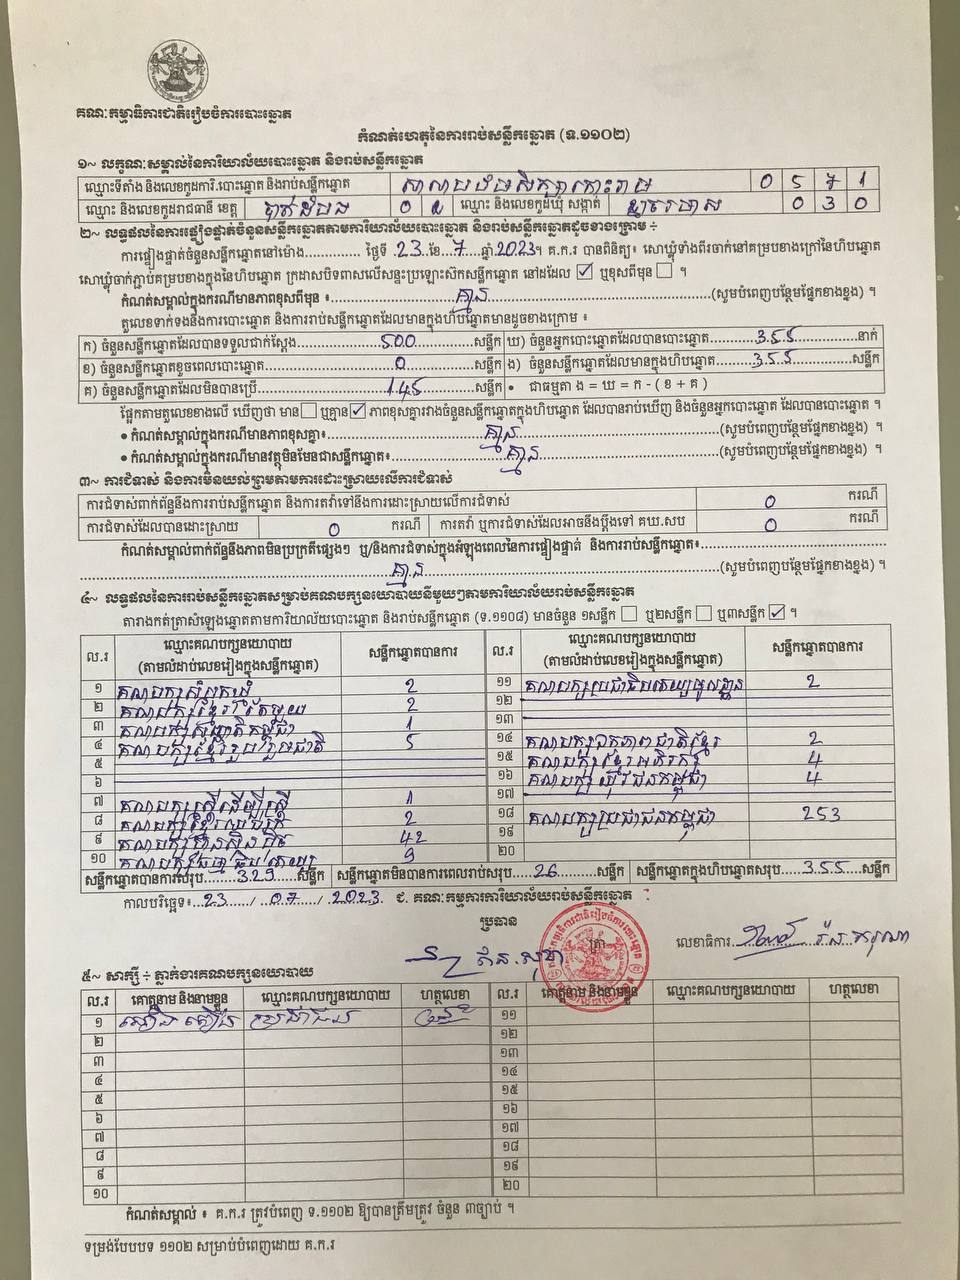 គណៈកម្មាធិការជាតិរៀបចំការបោះឆ្នោត
កំណត់ហេតុនៃការរាប់សន្លឹកឆ្នោត (ទ.១១០២)
១~ លក្ខណៈសម្គាល់នៃការិយាល័យបោះឆ្នោត និងរាប់សន្លឹកឆ្នោត
ឈ្មោះទីតាំង និងលេខកូដការិ.បោះឆ្នោត និងរាប់សន្លឹកឆ្នោត 0 5 7 1
ឈ្មោះ និងលេខកូដរាជធានី ខេត្ត បាត់ដំបង 0 2 ឈ្មោះ និងលេខកូដឃុំ សង្កាត់ 0 3 0
២~ លទ្ធផលនៃការផ្ទៀងផ្ទាត់ចំនួនសន្លឹកឆ្នោតតាមការិយាល័យបោះឆ្នោត និងរាប់សន្លឹកឆ្នោតដូចខាងក្រោម ÷
ការផ្ទៀងផ្ទាត់ចំនួនសន្លឹកឆ្នោតនៅម៉ោង.............. ថ្ងៃទី 23 ខែ 7 ឆ្នាំ 2023។ គ.ក.រ បានពិនិត្យ៖ សោឃ្លុំទាំងពីរចាក់នៅគម្របខាងក្រៅនៃហិបឆ្នោត
សោឃ្លុំចាក់ភ្ជាប់គម្របខាងក្នុងនៃហិបឆ្នោត ក្រដាសបិទពាសលើសន្ទះប្រឡោះស៊កសន្លឹកឆ្នោត នៅដដែល ☑ ឬខុសពីមុន ☐ ។
កំណត់សម្គាល់ក្នុងករណីមានភាពខុសពីមុន ៖ គ្មាន (សូមបំពេញបន្ថែមផ្នែកខាងខ្នង) ។
តួលេខទាក់ទងនឹងការបោះឆ្នោត និងការរាប់សន្លឹកឆ្នោតដែលមានក្នុងហិបឆ្នោតមានដូចខាងក្រោម ៖
ក) ចំនួនសន្លឹកឆ្នោតដែលបានទទួលជាក់ស្តែង 500 សន្លឹក ឃ) ចំនួនអ្នកបោះឆ្នោតដែលបានបោះឆ្នោត 355 នាក់
ខ) ចំនួនសន្លឹកឆ្នោតខូចពេលបោះឆ្នោត 0 សន្លឹក ង) ចំនួនសន្លឹកឆ្នោតដែលមានក្នុងហិបឆ្នោត 355 សន្លឹក
គ) ចំនួនសន្លឹកឆ្នោតដែលមិនបានប្រើ 145 សន្លឹក • ជាធម្មតា ង = ឃ = ក - ( ខ + គ )
ផ្អែកតាមតួលេខខាងលើ ឃើញថា មាន ☐ ឬគ្មាន ☑ ភាពខុសគ្នារវាងចំនួនសន្លឹកឆ្នោតក្នុងហិបឆ្នោត ដែលបានរាប់ឃើញ និងចំនួនអ្នកបោះឆ្នោត ដែលបានបោះឆ្នោត ។
• កំណត់សម្គាល់ក្នុងករណីមានភាពខុសគ្នា៖ គ្មាន (សូមបំពេញបន្ថែមផ្នែកខាងខ្នង) ។
• កំណត់សម្គាល់ក្នុងករណីមានវត្ថុមិនមែនជាសន្លឹកឆ្នោត៖ គ្មាន (សូមបំពេញបន្ថែមផ្នែកខាងខ្នង) ។
៣~ ការជំទាស់ និងការមិនយល់ព្រមតាមការដោះស្រាយលើការជំទាស់
ការជំទាស់ពាក់ព័ន្ធនឹងការរាប់សន្លឹកឆ្នោត និងការតវ៉ាទៅនឹងការដោះស្រាយលើការជំទាស់ 0 ករណី
ការជំទាស់ដែលបានដោះស្រាយ 0 ករណី ការតវ៉ា ឬការជំទាស់ដែលអាចនឹងប្តឹងទៅ គឃ.សប 0 ករណី
កំណត់សម្គាល់ពាក់ព័ន្ធនឹងភាពមិនប្រក្រតីផ្សេងៗ ឬ/និងការជំទាស់ក្នុងអំឡុងពេលនៃការផ្ទៀងផ្ទាត់ និងការរាប់សន្លឹកឆ្នោត៖
គ្មាន (សូមបំពេញបន្ថែមផ្នែកខាងខ្នង) ។
៤~ លទ្ធផលនៃការរាប់សន្លឹកឆ្នោតសម្រាប់គណបក្សនយោបាយនីមួយៗតាមការិយាល័យរាប់សន្លឹកឆ្នោត
តារាងកត់ត្រាសំឡេងឆ្នោតតាមការិយាល័យបោះឆ្នោត និងរាប់សន្លឹកឆ្នោត (ទ.១១០៨) មានចំនួន ១សន្លឹក ☐ ឬ២សន្លឹក ☐ ឬ៣សន្លឹក ☑ ។
ល.រ ឈ្មោះគណបក្សនយោបាយ (តាមលំដាប់លេខរៀងក្នុងសន្លឹកឆ្នោត) សន្លឹកឆ្នោតបានការ ល.រ ឈ្មោះគណបក្សនយោបាយ (តាមលំដាប់លេខរៀងក្នុងសន្លឹកឆ្នោត) សន្លឹកឆ្នោតបានការ
១ គណបក្សសំបុកឃ្មុំ 2 ១១ គណបក្សប្រជាធិបតេយ្យមូលដ្ឋាន 2
២ គណបក្សខ្មែរតែមួយ 2 ១២
៣ គណបក្សសញ្ជាតិកម្ពុជា 1 ១៣
៤ គណបក្សខ្មែររួបរួមជាតិ 5 ១៤ គណបក្សឯកភាពជាតិខ្មែរ 2
៥ ១៥ គណបក្សខ្មែរអភិរក្ស 4
៦ ១៦ គណបក្សយុវជនកម្ពុជា 4
៧ គណបក្សស្ត្រីដើម្បីស្ត្រី 1 ១៧
៨ 2 ១៨ គណបក្សប្រជាជនកម្ពុជា 253
៩ គណបក្សហ៊្វុនស៊ិនប៉ិច 42 ១៩
១០ គណបក្សធម្មាធិបតេយ្យ 9 ២០
សន្លឹកឆ្នោតបានការសរុប 329 សន្លឹក សន្លឹកឆ្នោតមិនបានការពេលរាប់សរុប 26 សន្លឹក សន្លឹកឆ្នោតក្នុងហិបឆ្នោតសរុប 355 សន្លឹក
កាលបរិច្ឆេទ៖ 23 / 07 / 2023 ជ. គណៈកម្មការការិយាល័យរាប់សន្លឹកឆ្នោត
ប្រធាន ត្រា លេខាធិការ
៥~ សាក្សី ÷ ភ្នាក់ងារគណបក្សនយោបាយ
ល.រ គោត្តនាម និងនាមខ្លួន ឈ្មោះគណបក្សនយោបាយ ហត្ថលេខា ល.រ គោត្តនាម និងនាមខ្លួន ឈ្មោះគណបក្សនយោបាយ ហត្ថលេខា
១ ប្រជាជន ១១
២ ១២
៣ ១៣
៤ ១៤
៥ ១៥
៦ ១៦
៧ ១៧
៨ ១៨
៩ ១៩
១០ ២០
កំណត់សម្គាល់ ៖ គ.ក.រ ត្រូវបំពេញ ទ.១១០២ ឱ្យបានត្រឹមត្រូវ ចំនួន ៣ច្បាប់ ។
ទម្រង់បែបបទ ១១០២ សម្រាប់បំពេញដោយ គ.ក.រ